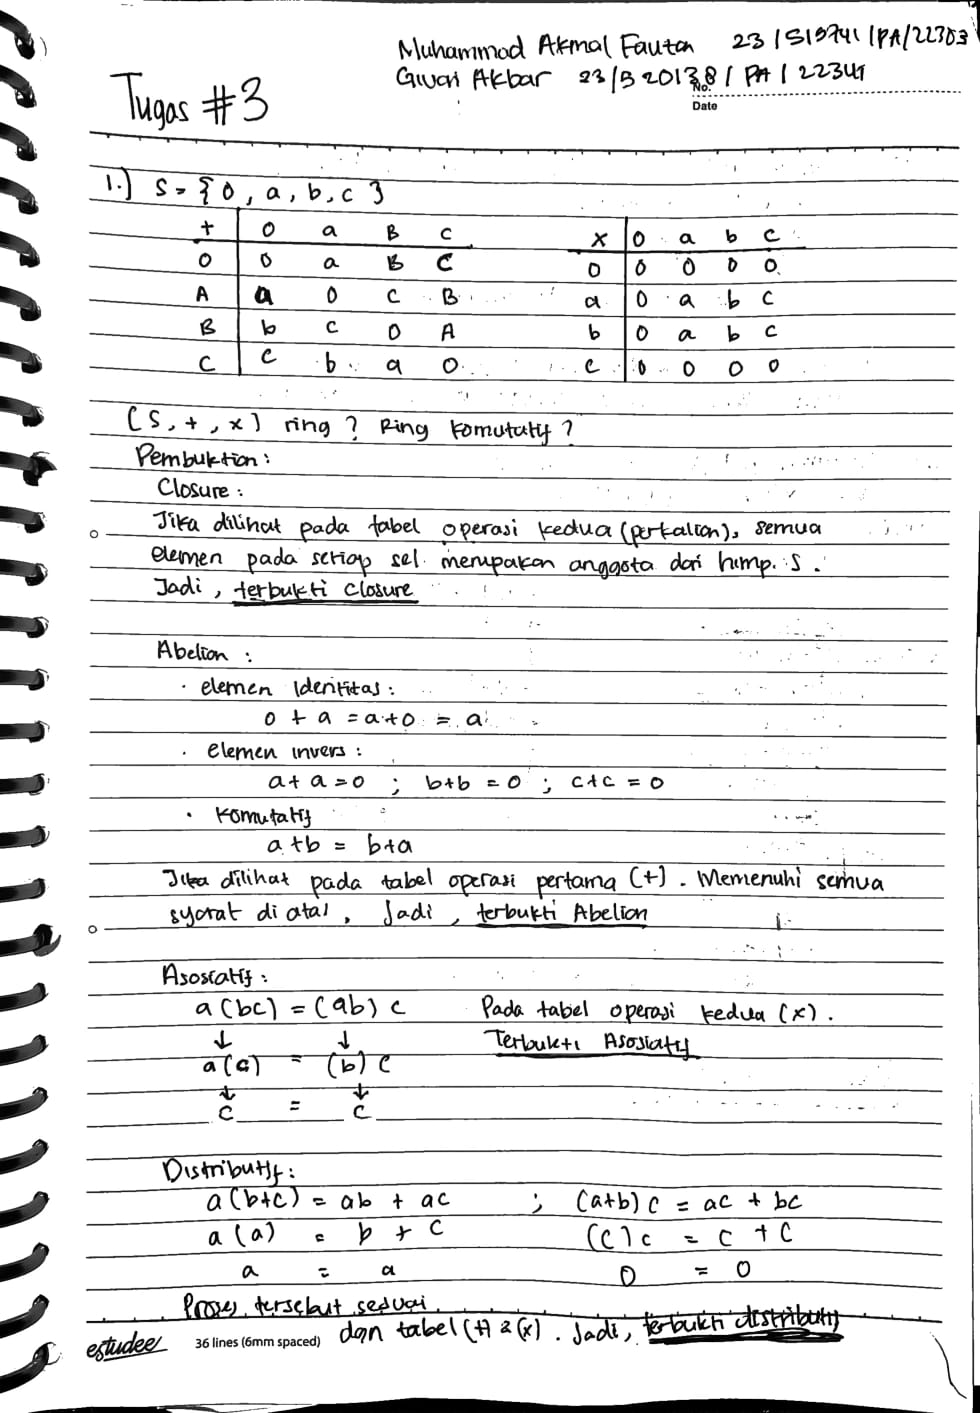 Muhammad Akmal Fauzan 23/519741/PA/22303
Givari Akbar 23/520138/PA/22341
No.
Date
Tugas #3
1.) S = {0, a, b, c}
+ 0 a B C
0 0 a B C
A a 0 C B
B b c 0 A
C c b a 0
x 0 a b c
0 0 0 0 0
a 0 a b c
b 0 a b c
c 0 0 0 0
(S, +, x) ring? Ring komutatif?
Pembuktian:
Closure:
Jika dilihat pada tabel operasi kedua (perkalian), semua
elemen pada setiap sel merupakan anggota dari himp. S.
Jadi, terbukti closure
Abelian:
· elemen Identitas:
0 + a = a+0 = a
· elemen invers:
a+a=0 ; b+b=0 ; c+c=0
· Komutatif
a+b = b+a
Jika dilihat pada tabel operasi pertama (+). Memenuhi semua
syarat di atas, Jadi, terbukti Abelian
Asosiatif:
a(bc) = (ab)c Pada tabel operasi kedua (x).
↓ ↓ Terbukti Asosiatif
a(c) = (b)c
↓ ↓
c = c
Distributif:
a(b+c) = ab + ac ; (a+b)c = ac + bc
a(a) = b + c (c)c = c + c
a = a 0 = 0
Proses tersebut sesuai
dgn tabel (+) & (x). Jadi, terbukti distributif
estudee 36 lines (6mm spaced)